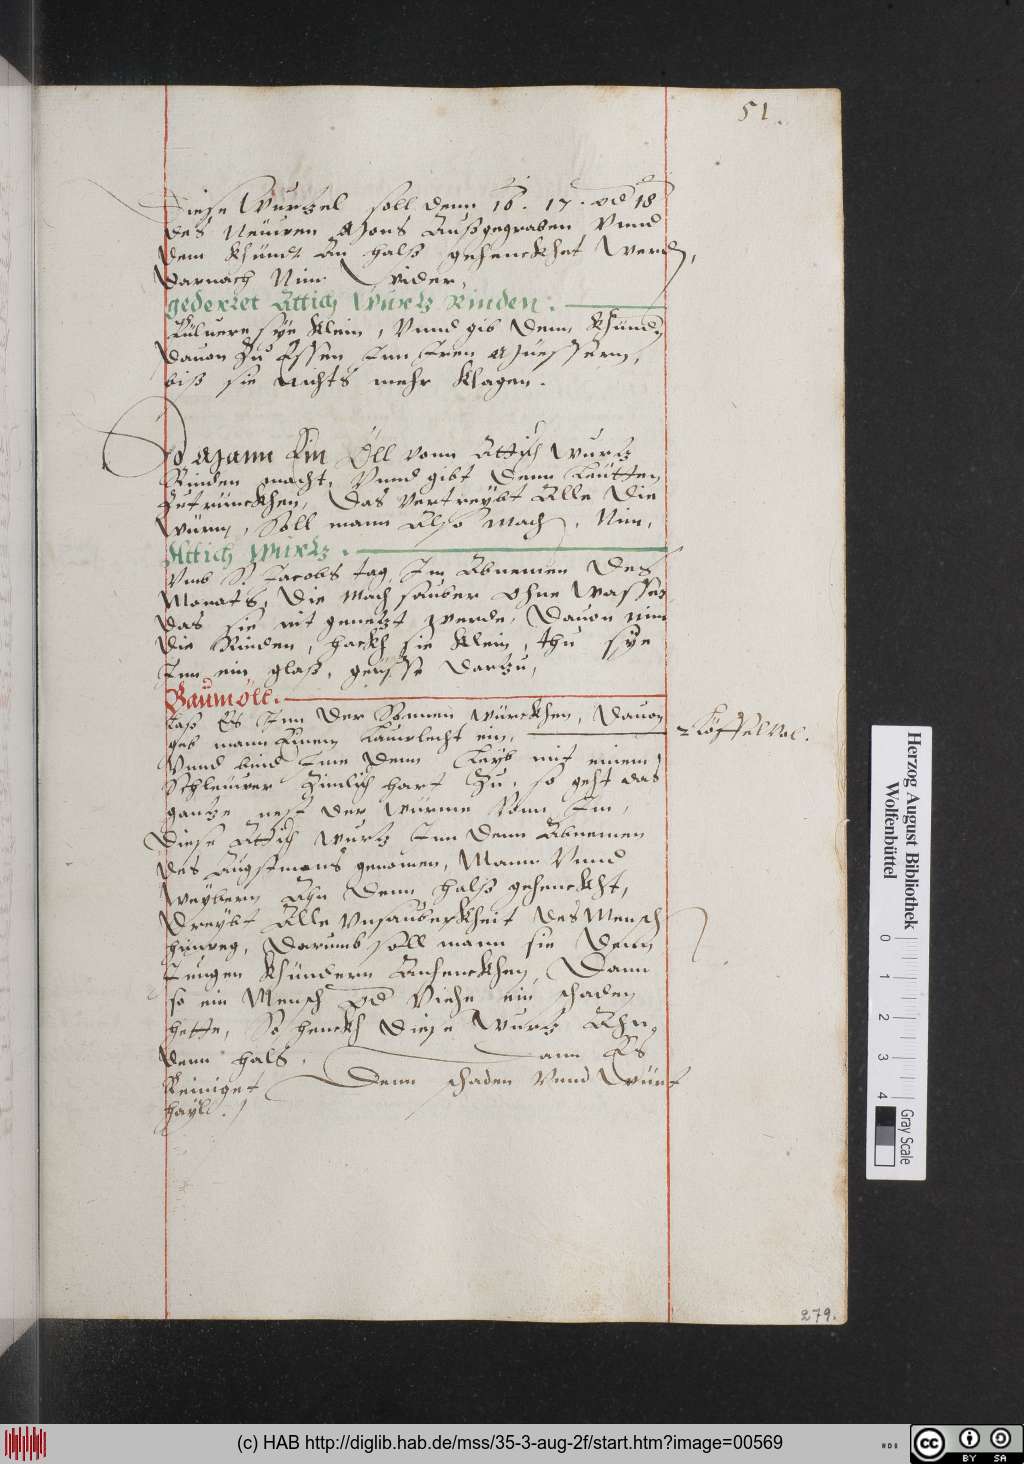 51.
Diese Wurtzel soll denn 16. 17. od 18
des Neüwen Mons Außgegraben Vnnd
dem khündt An halß gehenckhet werdn,
darnach Nim wider,
gederret Attich Wurtz Rinden.
Pülvere sye klein, Vnnd gib denn khündn
dauon Zu Essen Inn Iren Muessern,
biß sie nichts mehr klagen.
So Mann Ein Öll vonn Attich Wurtz
Rinden macht, Vnnd gibt denn Leütten
Zutrünckhen, das vertreybt Alle die
würm, Soll mann Also mach, Nim,
Attich Wurtz.
Vmb S. Jacobs tag, Im Abnemen des
Monats, die mach sauber ohne wasser,
das sie nit genetzt werde, dauon nim
die Rinden, hackh sie klein, thu sye
Inn ein glaß, geüsse dartzu,
Baumöll.
Laß Es Inn der Sonnen würckhen, dauon
geb mann Einem Lauwlecht ein,
2 Löffel vol.
Vnnd bind Ime denn Leyb mit einem
Schleuwer Zimlich hart Zu, so geht das
gantze nest der würme Vonn Im,
Diese Attich Wurtz Inn denn Abnemen
des Augstmons genomen, Mann Vnnd
weybern Ahn denn halß gehenckht,
dreybt Alle Vnsauberkheit des Mensch
hinweg, darumb soll mann sie denn
Jungen khündern Anhenckhen, Dann
so ein Mensch od Viehe ein schaden
hette, So henckh diese Wurtz Ahn
denn hals, Dann Es
Reiniget denn schaden Vnnd würt
hayl.
279.
Herzog August Bibliothek
Wolfenbüttel
0 1 2 3 4
Gray Scale
(c) HAB http://diglib.hab.de/mss/35-3-aug-2f/start.htm?image=00569
cc BY SA